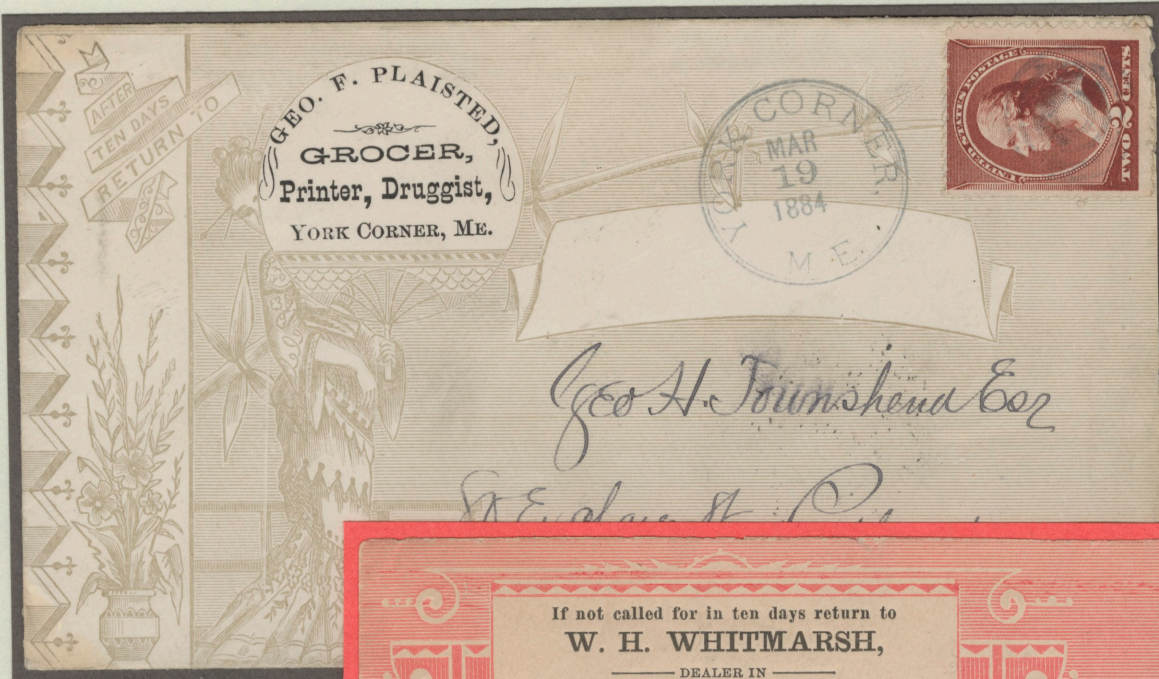 AFTER
TEN DAYS
RETURN TO
GEO. F. PLAISTED,
GROCER,
Printer, Druggist,
YORK CORNER, ME.
YORK CORNER.
MAR
19
1884
M E.
UNITED STATES POSTAGE
TWO 2 CENTS
Geo H. Townshend Esq
If not called for in ten days return to
W. H. WHITMARSH,
DEALER IN